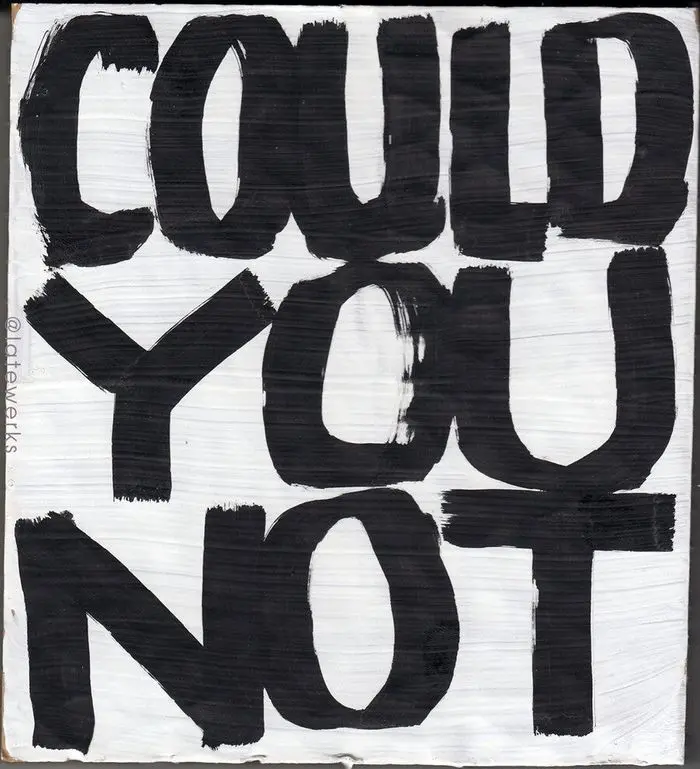 COULD
YOU
NOT
@latewerks